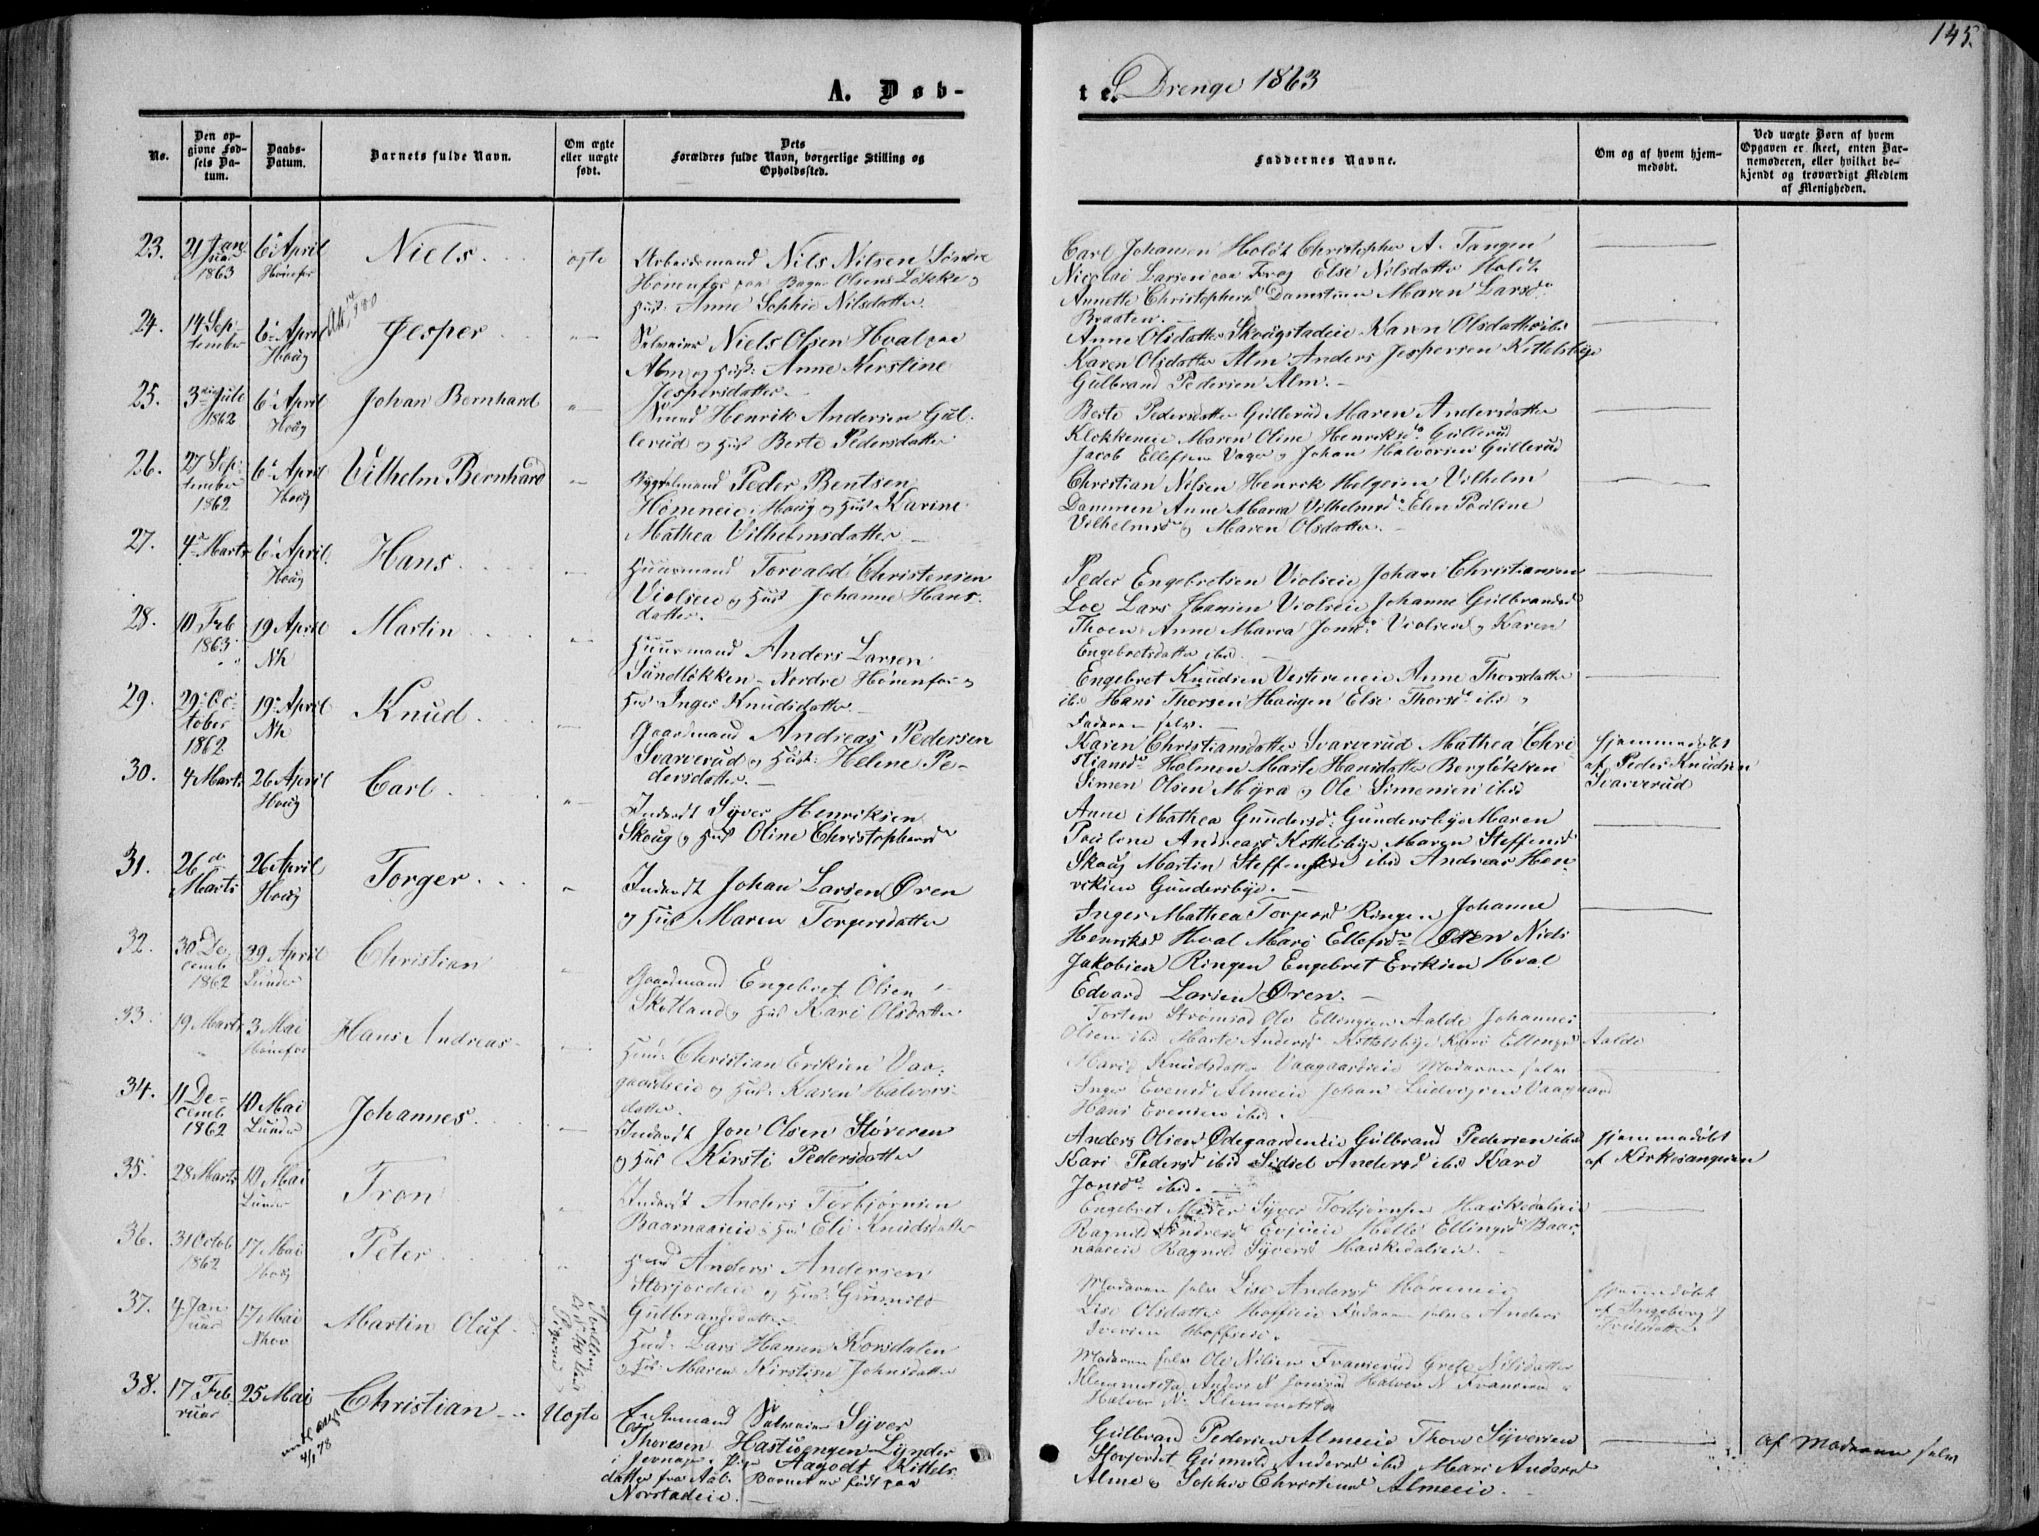 145.
A. Døb-
te. Drenge 1863
No.
Den op-
givne Fød-
sels Da-
tum.
Daabs-
Datum.
Barnets fulde Navn.
Om ægte
eller uægte
født.
Dets
Forældres fulde Navn, borgerlige Stilling og
Opholdssted.
Faddernes Navne.
Om og af hvem hjem-
medøbt.
Ved uægte Børn af hvem
Opgaven er skeet, enten Bar-
nemoderen, eller hvilket be-
kjendt og troværdigt Medlem
af Menigheden.
23.
21 Januar
1863
6 April
Hønefos
Niels
ægte
Arbeidsmand Nils Nilsen Søndre
Hønenfos paa Olsens Løkke og
Hust. Anne Sophie Nilsdatter
Carl Johansen Holdt Christopher A. Tangen
Nicolai Larsen paa Else Nilsdatter Holdt
Annette Christophersd Damstuen Maren Larsd
Braaten.
24.
14 Sep-
tember
6 April
Houg
Jesper
Selveier Niels Olsen Hval paa
Alm og Hust: Anne Kirstine
Jespersdatter.
Anne Olsdatter Skougstadeie Karen Olsdatter ibid
Karen Olsdatter Alm Anders Jespersen Kittelsbye
Gulbrand Pedersen Alm.
25.
3die Juli
1862
6 April
Houg
Johan Bernhard
Henrik Andersen Gul-
lerud og Hust Berte Pedersdatter
Berte Pedersdatter Gullerud Maren Andersdatter
Klekkeneie Maren Oline Henriksd Gullerud
Jacob Ellefsen Vager og Johan Halvorsen Gullerud
26.
27 Sep-
tember
1862
6 April
Houg
Vilhelm Bernhard
Bygselmand Peder Bentsen
Hønneie i Houg og Hust Karine
Mathea Vilhelmsdatter
Christian Nilsen Henrik Helgesen Vilhelm
Dammen Anne Maria Vilhelmsd Elen Pauline
Vilhelmsd og Maren Olsdatter.
27.
4 Marts
6 April
Houg
Hans
Huusmand Torvald Christensen
Violseie og Hust Johanne Hans-
datter.
Peder Engebretsen Violseie Johan Christiansen
Loe Lars Hansen Violseie Johanne Gulbrandsd
Thoen Anne Maria Jonsd Violseie og Karen
Engebretsdatter ibid.
28.
10 Feb
1863
19 April
Nh
Martin
Huusmand Anders Larsen
Sundløkken Nordre Hønenfos og
Hust Inger Knudsdatter
Engebret Knudsen Vesterneie Anne Thorsdatter
ibid Hans Thorsen Haugen Else Thorsd ibid og
Faderen selv.
29.
29 Oc-
tober
1862
19 April
Nh
Knud
Gaardmand Andreas Pedersen
Svarverud og Hust: Helene Pe-
dersdatter.
Karen Christiansdatter Svarverud Mathea Chri-
stiansd Holmen Marte Hansdatter Bergløkken
Simen Olsen Myra og Ole Simensen ibid
Hjemmedøbt
af Peder Knudsen
Svarverud
30.
4 Marts
26 April
Houg
Carl
Inderst Syver Henriksen
Skoug og Hust Oline Christophersd
Anne Mathea Gundersd Gundersbye Maren
Poulone Andreasd Kittelsbye Maren Steffensd
Skoug Martin Steffensen ibid Andreas Hen-
riksen Gundersbye.
31.
26 de
Marts
26 April
Houg
Torger
Inderst Johan Larsen Øren
og Hust Maren Torgersdatter
Inger Mathea Torgersd Ringen Johanne
Henriksd Hval Mari Ellefsd Øren Niels
Jakobsen Ringen Engebret Eriksen Hval
Edvard Larsen Øren.
32.
30 De-
cemb
1862
29 April
Lunder
Christian
Gaardmand Engebret Olsen
Skotland og Hust Kari Olsdatter
Torsten Strømsod Ole Ellingsen Aalde Johannes
Olsen ibid Marte Andersd Kittelsbye Kari Ellingsd Aalde
33.
19 Marts
3 Mai
Hønefos
Hans Andreas
Huus: Christian Eriksen Vaa-
gaardseie og Hust: Karen Halvors-
datter.
Marie Knudsdatter Vaagaardseie Moderen selv
Inger Evensd Almeeie Johan Ludvigsen Vaagaard
Hans Evensen ibid.
34.
11 De-
cemb
1862
10 Mai
Lunder
Johannes
Inderst Jon Olsen Støveren
og Hust Kirsti Pedersdatter
Anders Olsen Ødegaardseie Gulbrand Pedersen ibid
Kari Pedersd ibid Sidsel Andersd ibid Kari
Jonsd ibid.
Hjemmedøbt
af Kirkesangeren
35.
28 Marts
10 Mai
Lunder
Tron
Inderst Anders Torbjørnsen
Baarnaaseie og Hust Eli Knudsdatter
Engebret Syver Torbjørnsen Haukedalseie
Ragnild Evjueie Helle Ellingsd Baar-
naaseie Ragnild Syversd Haukedalseie.
36.
31 Octob
1862
17 Mai
Houg
Peter
Anders Andersen
Storjordeie og Hust: Gunnild
Gulbrandsdatter
Moderen selv Lise Andersd Hønneeie
Lise Olsdatter Hoffseie Faderen selv Anders
Iversen Hoffseie.
Hjemmedøbt
af Ingeborg
37.
4 Jan-
uar
17 Mai
Nhov
Martin Oluf
Tvilling
Huus: Lars Hansen Korsdalen
og Hust: Maren Kirstine Johnsdatter
Moderen selv Ole Nilsen Franserud Grete Nilsdatter
Klemmetsta Halvor N. Franserud
Halvor N. Klemmetsta
38.
17 Feb-
ruar
25 Mai
Christian
Uægte
Enkemand Selveier Syver
Thoresen Hastuengen Lynder
i Jevnager Pige Aagodt Kittels-
datter fra Aal. Barnet er født paa
Norstadeie.
Gulbrand Pedersen Almeeie Thore Syversen
Storjordet Gunnild Andersd ibid Mari Andersd
Alme og Sophie Christiansd Almeeie.
af Moderen selv